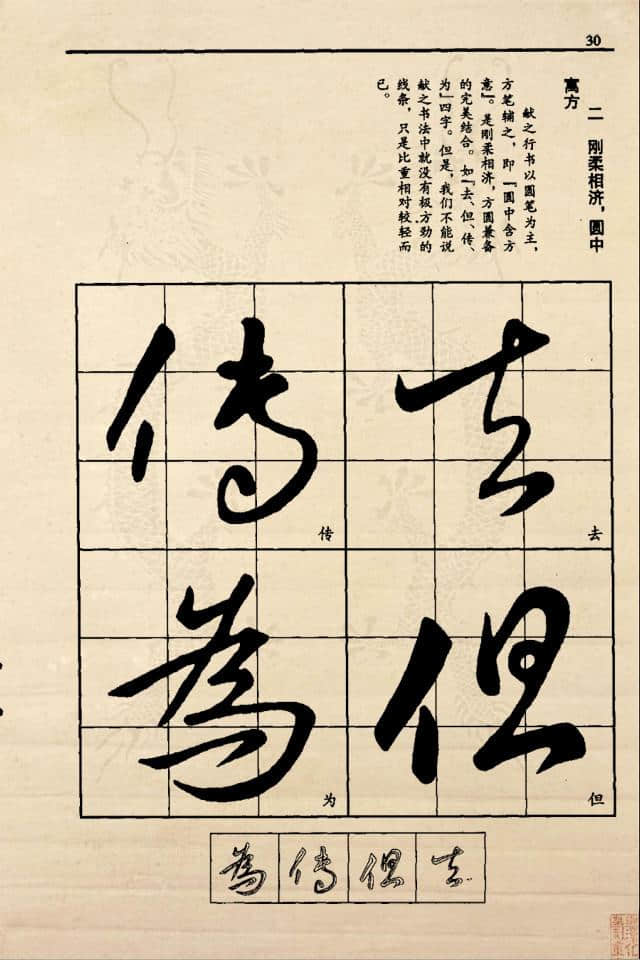 30
二 刚柔相济，圆中
寓方
献之行书以圆笔为主，
方笔辅之，即『圆中含方
意』。是刚柔相济，方圆兼备
的完美结合。如『去、但、传、
为』四字。但是，我们不能说
献之书法中就没有极方劲的
线条，只是比重相对较轻而
已。
去
去
但
但
傳
传
為
为
為傳但去